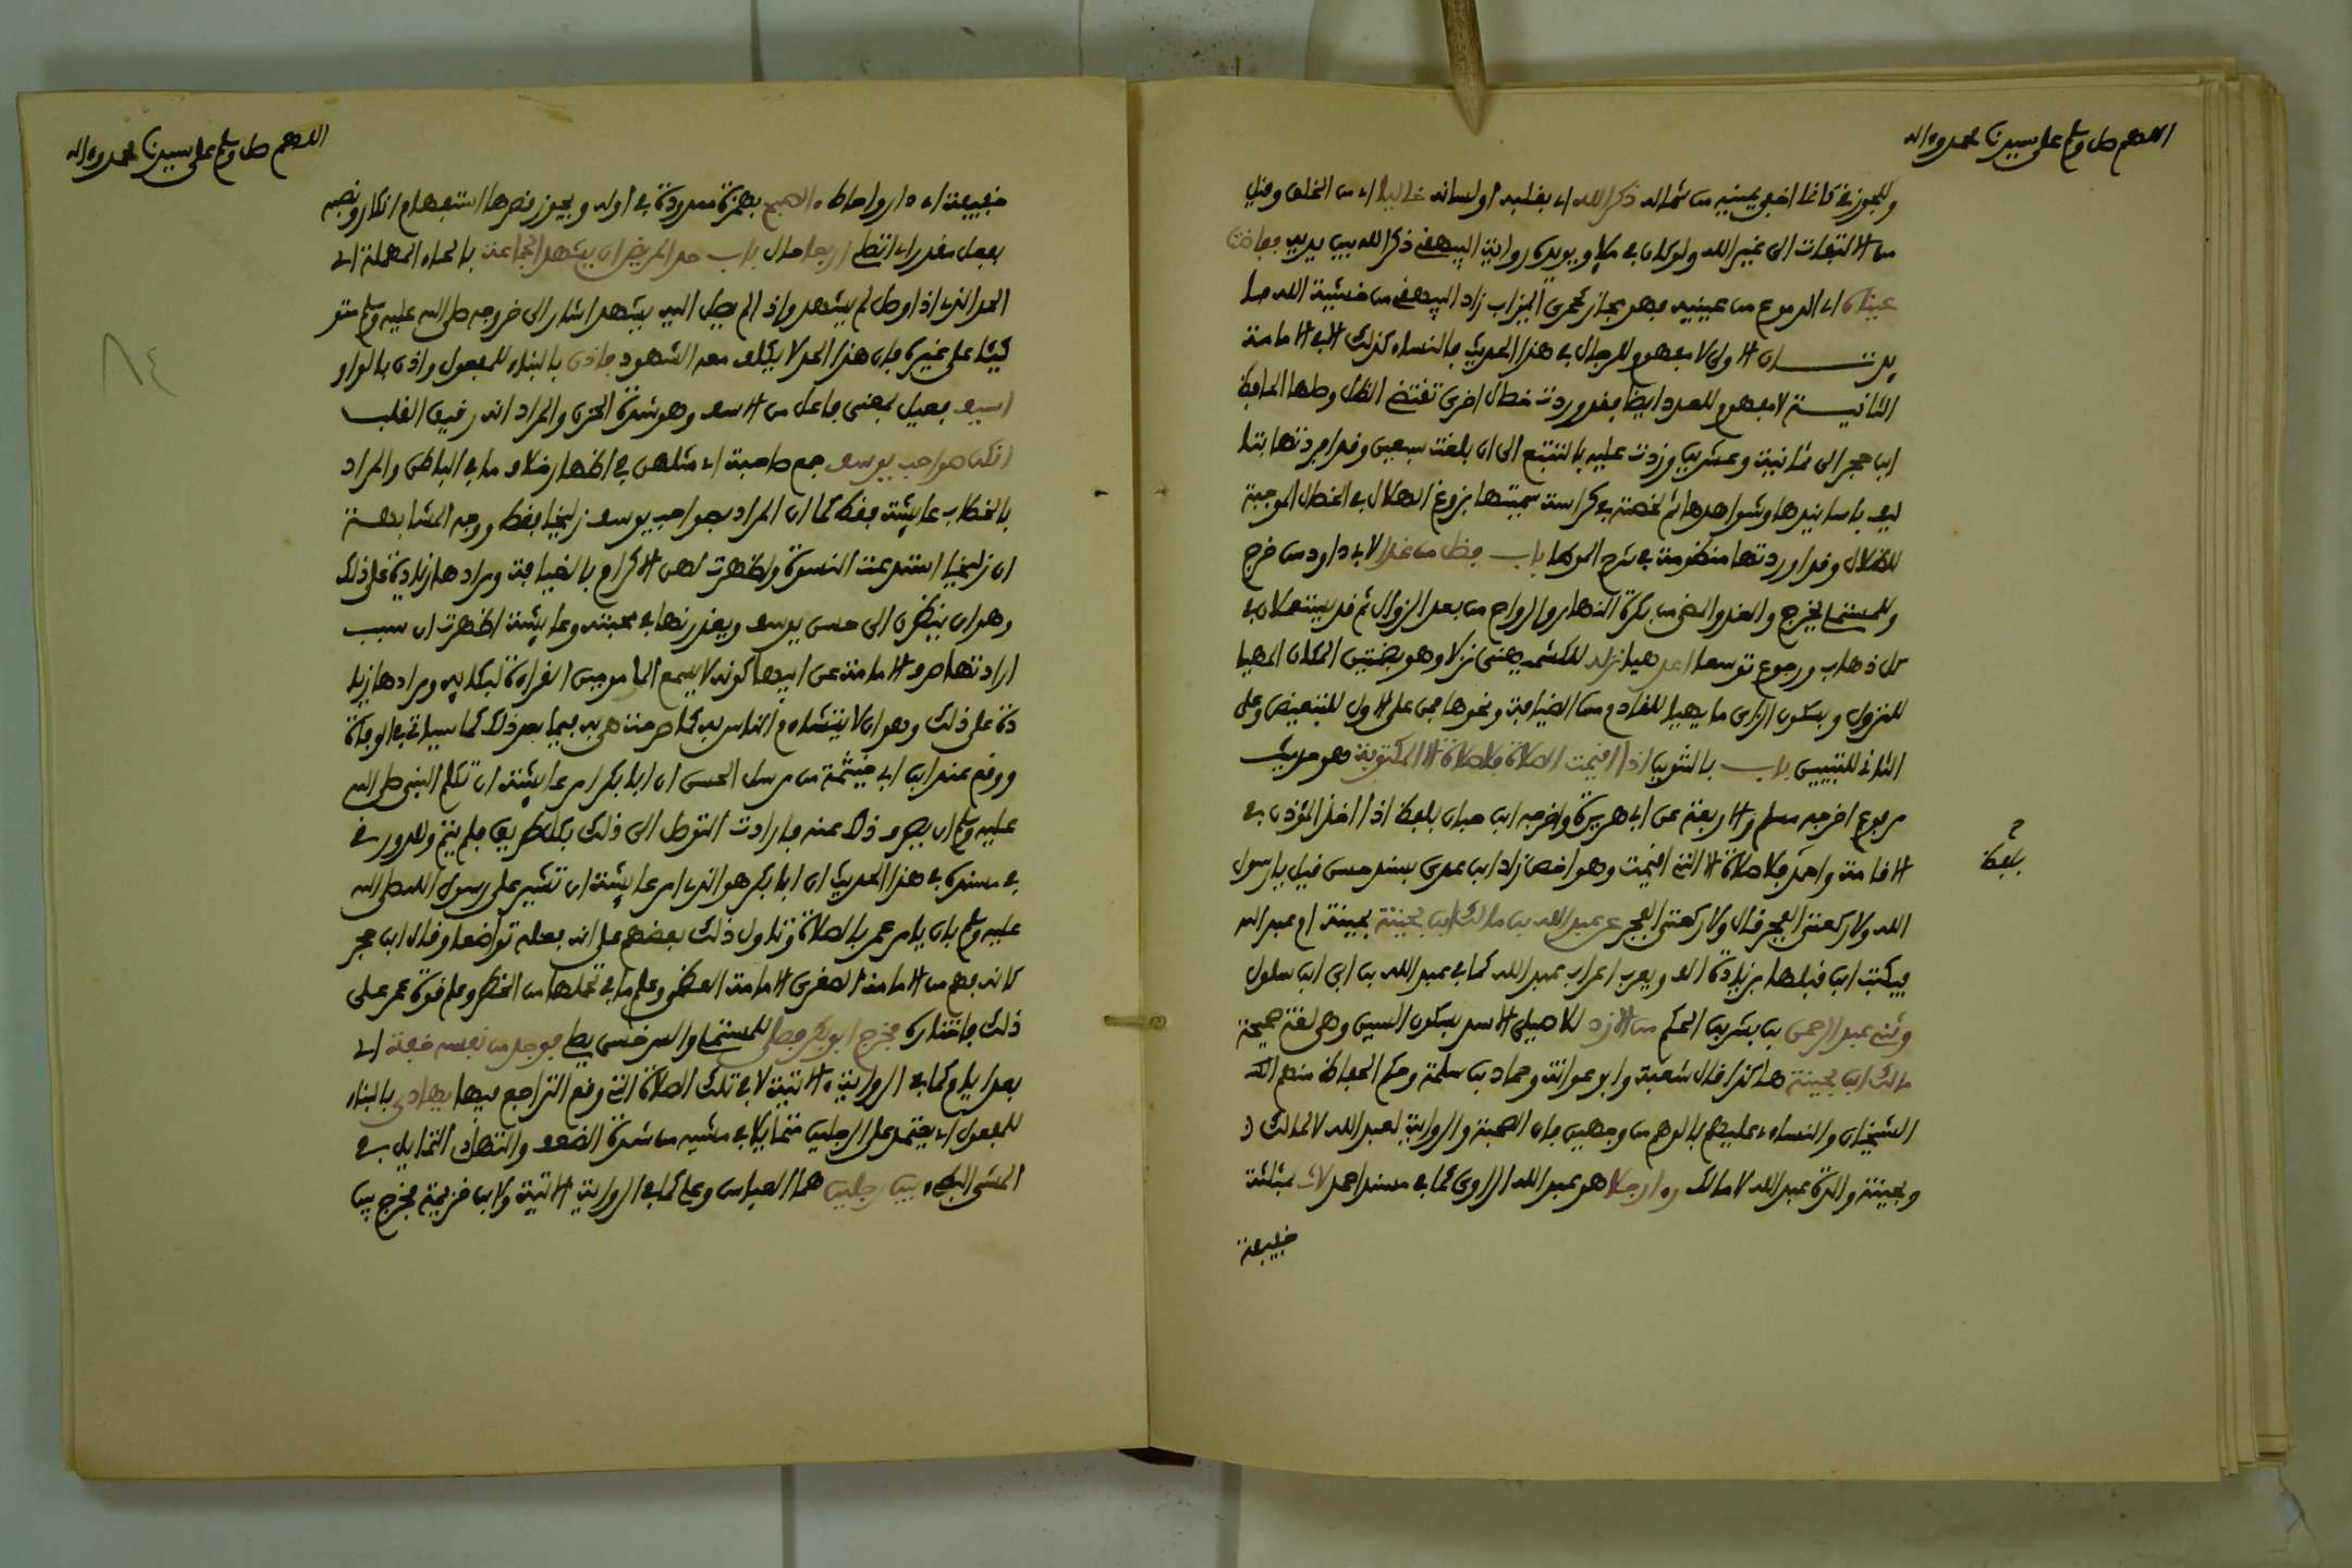 اللهم صل وسلم على سيدنا محمد وءاله
وللجوزقي كأنما أخفى يمينه من شماله ذكر الله أي بقلبه أو لسانه خاليا أي من الخلق وقيل
من الالتفات إلى غير الله ولو كان في ملإ ويؤيده رواية البيهقي ذكر الله بين يديه ففاضت
عيناه أي الدموع من عينيه فهو مجاز كجرى الميزاب زاد البيهقي من خشية الله
الأولى لا مفهوم للرجال في هذا الحديث فالنساء كذلك إلا في الإمامة
الثانية لا مفهوم للعدد أيضا فقد وردت خصال أخرى تقتضي الظل وصلها الحافظ
ابن حجر إلى ثمانية وعشرين وزدت عليه بالتتبع إلى أن بلغت سبعين وقد أفردتها بتأ
ليف بأسانيدها وشواهدها ثم لخصته في كراسة سميتها بزوغ الهلال في الخصال الموجبة
للظلال وقد أوردتها منظومة في شرح الموطا باب فضل من غدا لأبي داود من خرج
وللمستملي يخرج والغدو المضي من بكرة النهار والرواح من بعد الزوال ثم قد يستعملان في
كل ذهاب ورجوع توسعا أعد هيأ نزله للكشميهني نزلا وهو بضمتين المكان المهيأ
للنزول وبسكون الزاي ما يهيأ للقادم من الضيافة ونحوها فمن على الأول للتبعيض وعلى
الثاني للتبيين باب بالتنوين إذا أقيمت الصلاة فلا صلاة إلا المكتوبة هو حديث
مرفوع أخرجه مسلم والأربعة عن أبي هريرة وأخرجه ابن حبان بلفظ إذا أخذ المؤذن في
الإقامة وأحمد فلا صلاة إلا التي أقيمت وهو أخص زاد ابن عدي بسند حسن قيل يا رسول
الله ولا ركعتي الفجر قال ولا ركعتي الفجر عن عبد الله بن مالك ابن بحينة بحينة أم عبد الله
فيكتب ابن قبلها بزيادة ألف ويعرب إعراب عبد الله كما في عبد الله بن أبي ابن سلول
وثني عبد الرحمن بن بشر بن الحكم من الأزد للأصيلي الأسد بسكون السين وهي لغة صحيحة
مالك ابن بحينة هكذا قال شعبة وأبو عوانة وحماد بن سلمة وحكم الحفاظ منهم
الشيخان والنساءي عليهم بالوهم من وجهين فإن الصحبة والرواية لعبد الله لا لمالك
وبحينة والدة عبد الله لا مالك رءا رجلا هو عبد الله الراوي كما في مسند أحمد لاث بمثلثة
خفيفة
بلفظ
اللهم صل وسلم على سيدنا محمد وءاله
خفيفة أي دار وأحاط ءالصبح بهمزة ممدودة في أوله ويجوز قصرها استفهام إنكار ونصبه
بفعل مقدر أي أتصلي أربعا حال باب حد المريض أن يشهد الجماعة بالحاء المهملة أي
الحد الذي إذا وصل لم يشهد وإذا لم يصل إليه يشهد أشار إلى خروجه صلى الله عليه وسلم متو
كئا على غيره فإن هذا الحد لا يكلف معه الشهود فأذن بالبناء للمفعول وأذن بالواو
أسيف فعيل بمعنى فاعل من الأسف وهو شدة الحزن والمراد أنه رقيق القلب
إنكن صواحب يوسف جمع صاحبة أي مثلهن في إظهار خلاف ما في الباطن والمراد
بالخطاب عايشة فقط كما أن المراد بصواحب يوسف زليخا فقط ووجه المشابهة
أن زليخا استدعت النسوة وأظهرت لهن الإكرام بالضيافة ومرادها زيادة على ذلك
وهو أن ينظرن إلى حسن يوسف ويعذرنها في محبته وعايشة أظهرت أن سبب
إرادتها صرف الإمامة عن أبيها كونه لا يسمع المأمومين القراءة لبكايه ومرادها زيا
دة على ذلك وهو أن لا يتشاءم الناس به كما صرحت هي به فيما بعد ذلك كما سياتي في الوفاة
ووقع عند ابن أبي خيثمة من مرسل الحسن أن أبا بكر أمر عايشة أن تكلم النبي صلى الله
عليه وسلم أن يصرف ذلك عنه فأرادت التوصل إلى ذلك بكل طريق فلم يتم وللدورقي
في مسنده في هذا الحديث أن أبا بكر هو الذي أمر عايشة أن تشير على رسول الله صلى الله
عليه وسلم بأن يأمر عمر بالصلاة وتأول ذلك بعضهم على أنه فعله تواضعا وقال ابن حجر
كأنه فهم من الإمامة الصغرى الإمامة العظمى وعلم ما في تحملها من الخطر وعلم قوة عمر على
ذلك فاختاره فخرج أبو بكر فصلى للمستملي والسرخسي يصلي فوجد من نفسه خفة أي
بعد أيام وكما في الرواية الآتية لا في تلك الصلاة التي وقع التراجع فيها يهادى بالبناء
للمفعول أي يعتمد على الرجلين متمايلا في مشيه من شدة الضعف والتهادي التمايل في
المشي البطيء بين رجلين هما العباس وعلي كما في الرواية الآتية ولابن خزيمة فخرج بين
٨٤